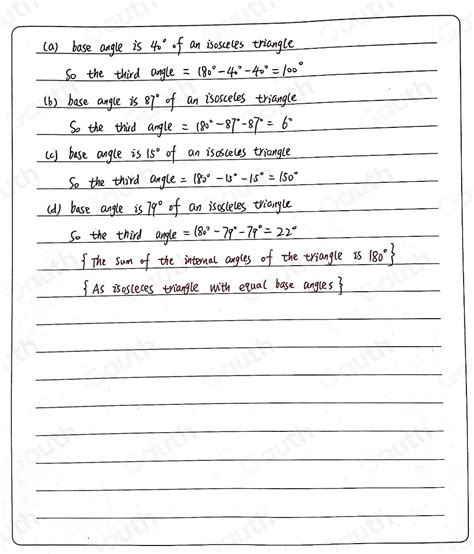 (a) base angle is 40° of an isosceles triangle
So the third angle = 180° - 40° - 40° = 100°
(b) base angle is 87° of an isosceles triangle
So the third angle = 180° - 87° - 87° = 6°
(c) base angle is 15° of an isosceles triangle
So the third angle = 180° - 15° - 15° = 150°
(d) base angle is 79° of an isosleles triangle
So the third angle = 180° - 79° - 79° = 22°
{ The sum of the internal angles of the triangle is 180° }
{ As isosleces triangle with equal base angles }
Gauth